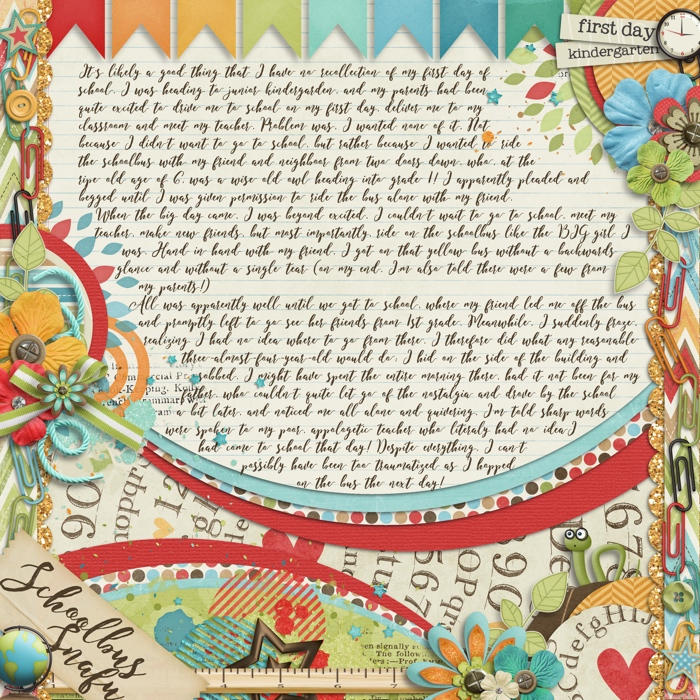 first day
kindergarten
It's likely a good thing that I have no recollection of my first day of
school. I was heading to junior kindergarden, and my parents had been
quite excited to drive me to school on my first day, deliver me to my
classroom and meet my teacher. Problem was, I wanted none of it. Not
because I didn't want to go to school, but rather because I wanted to ride
the schoolbus with my friend and neighboor from two doors down, who, at the
ripe old age of 6, was a wise old owl heading into grade 1! I apparently pleaded and
begged until I was given permission to ride the bus alone with my friend.
When the big day came, I was beyond excited. I couldn't wait to go to school, meet my
teacher, make new friends, but most importantly, ride on the schoolbus like the BIG girl I
was. Hand in hand with my friend, I got on that yellow bus without a backwards
glance and without a single tear (on my end. I'm also told there were a few from
my parents!)
All was apparently well until we got to school, where my friend led me off the bus
and promptly left to go see her friends from 1st grade. Meanwhile, I suddenly froze,
realizing I had no idea where to go from there. I therefore did what any reasonable
three-almost-four-year-old would do; I hid on the side of the building and
sobbed. I might have spent the entire morning there, had it not been for my
father, who couldn't quite let go of the nostalgia and drove by the school
a bit later, and noticed me all alone and quivering. I'm told sharp words
were spoken to my poor, appologetic teacher who literaly had no idea I
had come to school that day! Despite everything, I can't
possibly have been too traumatized as I hopped
on the bus the next day!
Schoolbus
Snafu
defgHIJ